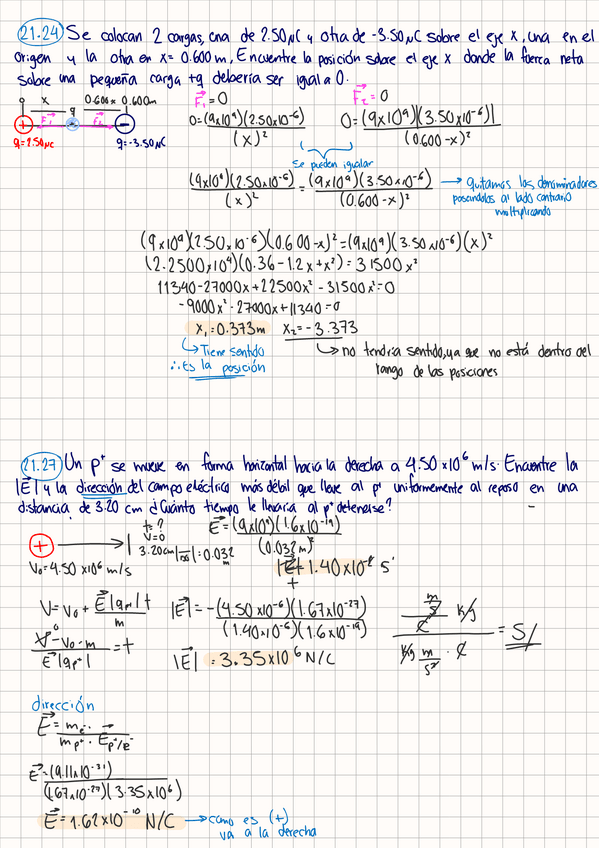 21.24 Se colocan 2 cargas, una de 2.50 μC y otra de -3.50 μC sobre el eje x, una en el
origen y la otra en x= 0.600 m, Encuentre la posición sobre el eje x donde la fuerza neta
sobre una pequeña carga +q debería ser igual a 0.
x 0.600x 0.600m
q
F₁ F₂
+ -
q=2.50μC q=-3.50μC
F₁=0 F₂=0
0=(9x10⁹)(2.50x10⁻⁶)/(x)² 0=(9x10⁹)(3.50x10⁻⁶)|/(0.600-x)²
Se pueden igualar
(9x10⁹)(2.50x10⁻⁶)/(x)² = (9x10⁹)(3.50x10⁻⁶)/(0.600-x)² → quitamos los denominadores
pasandolos al lado contrario
multiplicando
(9x10⁹)(2.50x10⁻⁶)(0.600-x)²=(9x10⁹)(3.50x10⁻⁶)(x)²
(2.2500x10⁴)(0.36-1.2x+x²)=31500x²
11340-27000x+22500x²-31500x²=0
-9000x²-27000x+11340=0
x₁=0.373m x₂=-3.373
↳Tiene sentido
∴Es la posición
↳no tendría sentido, ya que no está dentro del
rango de las posiciones
21.27 Un p⁺ se mueve en forma horizontal hacia la derecha a 4.50 x10⁶ m/s. Encuentre la
|E| y la dirección del campo eléctrico más débil que lleve al p⁺ uniformemente al reposo en una
distancia de 3.20 cm ¿Cuánto tiempo le llevaría al p⁺ detenerse?
+ → t=?
V=0
3.20cm
V₀=4.50 x10⁶ m/s
=0.032 m
E=(9x10⁹)(1.6x10⁻¹⁹)/(0.032m)²
1.40x10⁻⁸ s
t
V=V₀+E|qₚ|t/m
V⁰-V₀·m/E|qₚ⁺|=t
|E|=-(4.50x10⁻⁶)(1.67x10⁻²⁷)/(1.40x10⁻⁶)(1.6x10⁻¹⁹)
|E|=3.35x10⁶ N/C
m/s / C kg / kg m/s² · C = S/
dirección
E=mₑ⁻·→/mₚ⁺·Eₚ⁺/e⁻
E=(9.11x10⁻³¹)/(1.67x10⁻²⁷)(3.35x10⁶)
E=1.62x10⁻¹⁰ N/C → como es (+)
va a la derecha